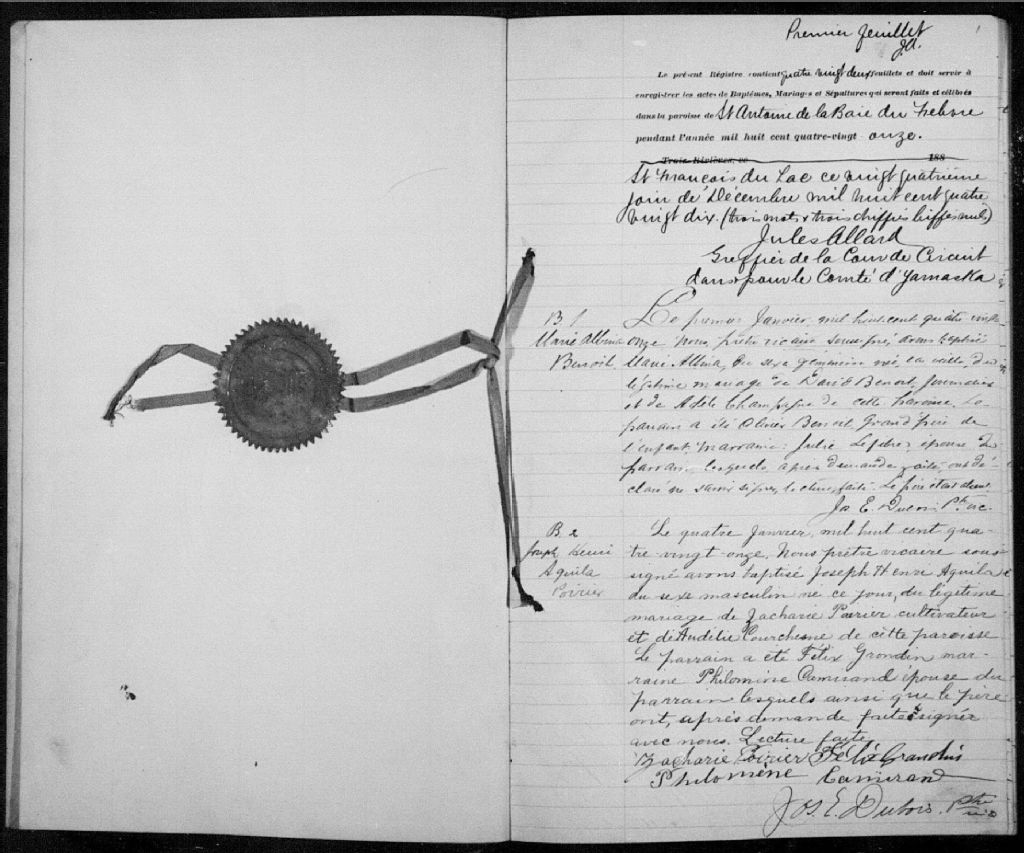 Premier feuillet
J.A.
1
Le présent Régistre contient quatre vingt deux feuillets et doit servir à
enregistrer les actes de Baptêmes, Mariages et Sépultures qui seront faits et célébrés
dans la paroisse de St Antoine de la Baie du Febvre
pendant l'année mil huit cent quatre-vingt onze.
Trois-Rivières, ce 188
St François du Lac ce vingt quatrième
jour de Décembre mil huit cent quatre
vingt dix. (trois mots & trois chiffres biffés nuls)
Jules Allard
Greffier de la Cour de Circuit
dans & pour le Comté d'Yamaska
B 1
Marie Albina
Benoit
Le premier Janvier, mil huit-cent quatre vingt
onze Nous, prêtre vicaire soussigné, avons baptisé
Marie Albina, du sexe féminin née la veille, du
légitime mariage de David Benoit, Journalier
et de Adèle Champagne de cette paroisse. Le
parrain a été Olivier Benoit Grand père de
l'enfant, Marraine: Julie Lefebvre épouse du
parrain lesquels après demande faite, ont dé-
claré ne savoir signer, lecture faite. Le père était absent.
Jos E. Dubois Ptre vic.
B 2
Joseph Henri
Aquila
Poirier
Le quatre Janvier, mil huit cent qua-
tre vingt-onze, Nous prêtre vicaire sous-
signé avons baptisé Joseph Henri Aquila
du sexe masculin né ce jour, du légitime
mariage de Zacharie Poirier cultivateur
et d'Audélie Courchesne de cette paroisse
Le parrain a été Félix Grondin mar-
raine Philomène Camirand épouse du
parrain lesquels ainsi que le père
ont, après demande faite, signé
avec nous. Lecture faite
Zacharie Poirier Félix Grondin
Philomène Camirand
Jos. E. Dubois. Ptre
vic